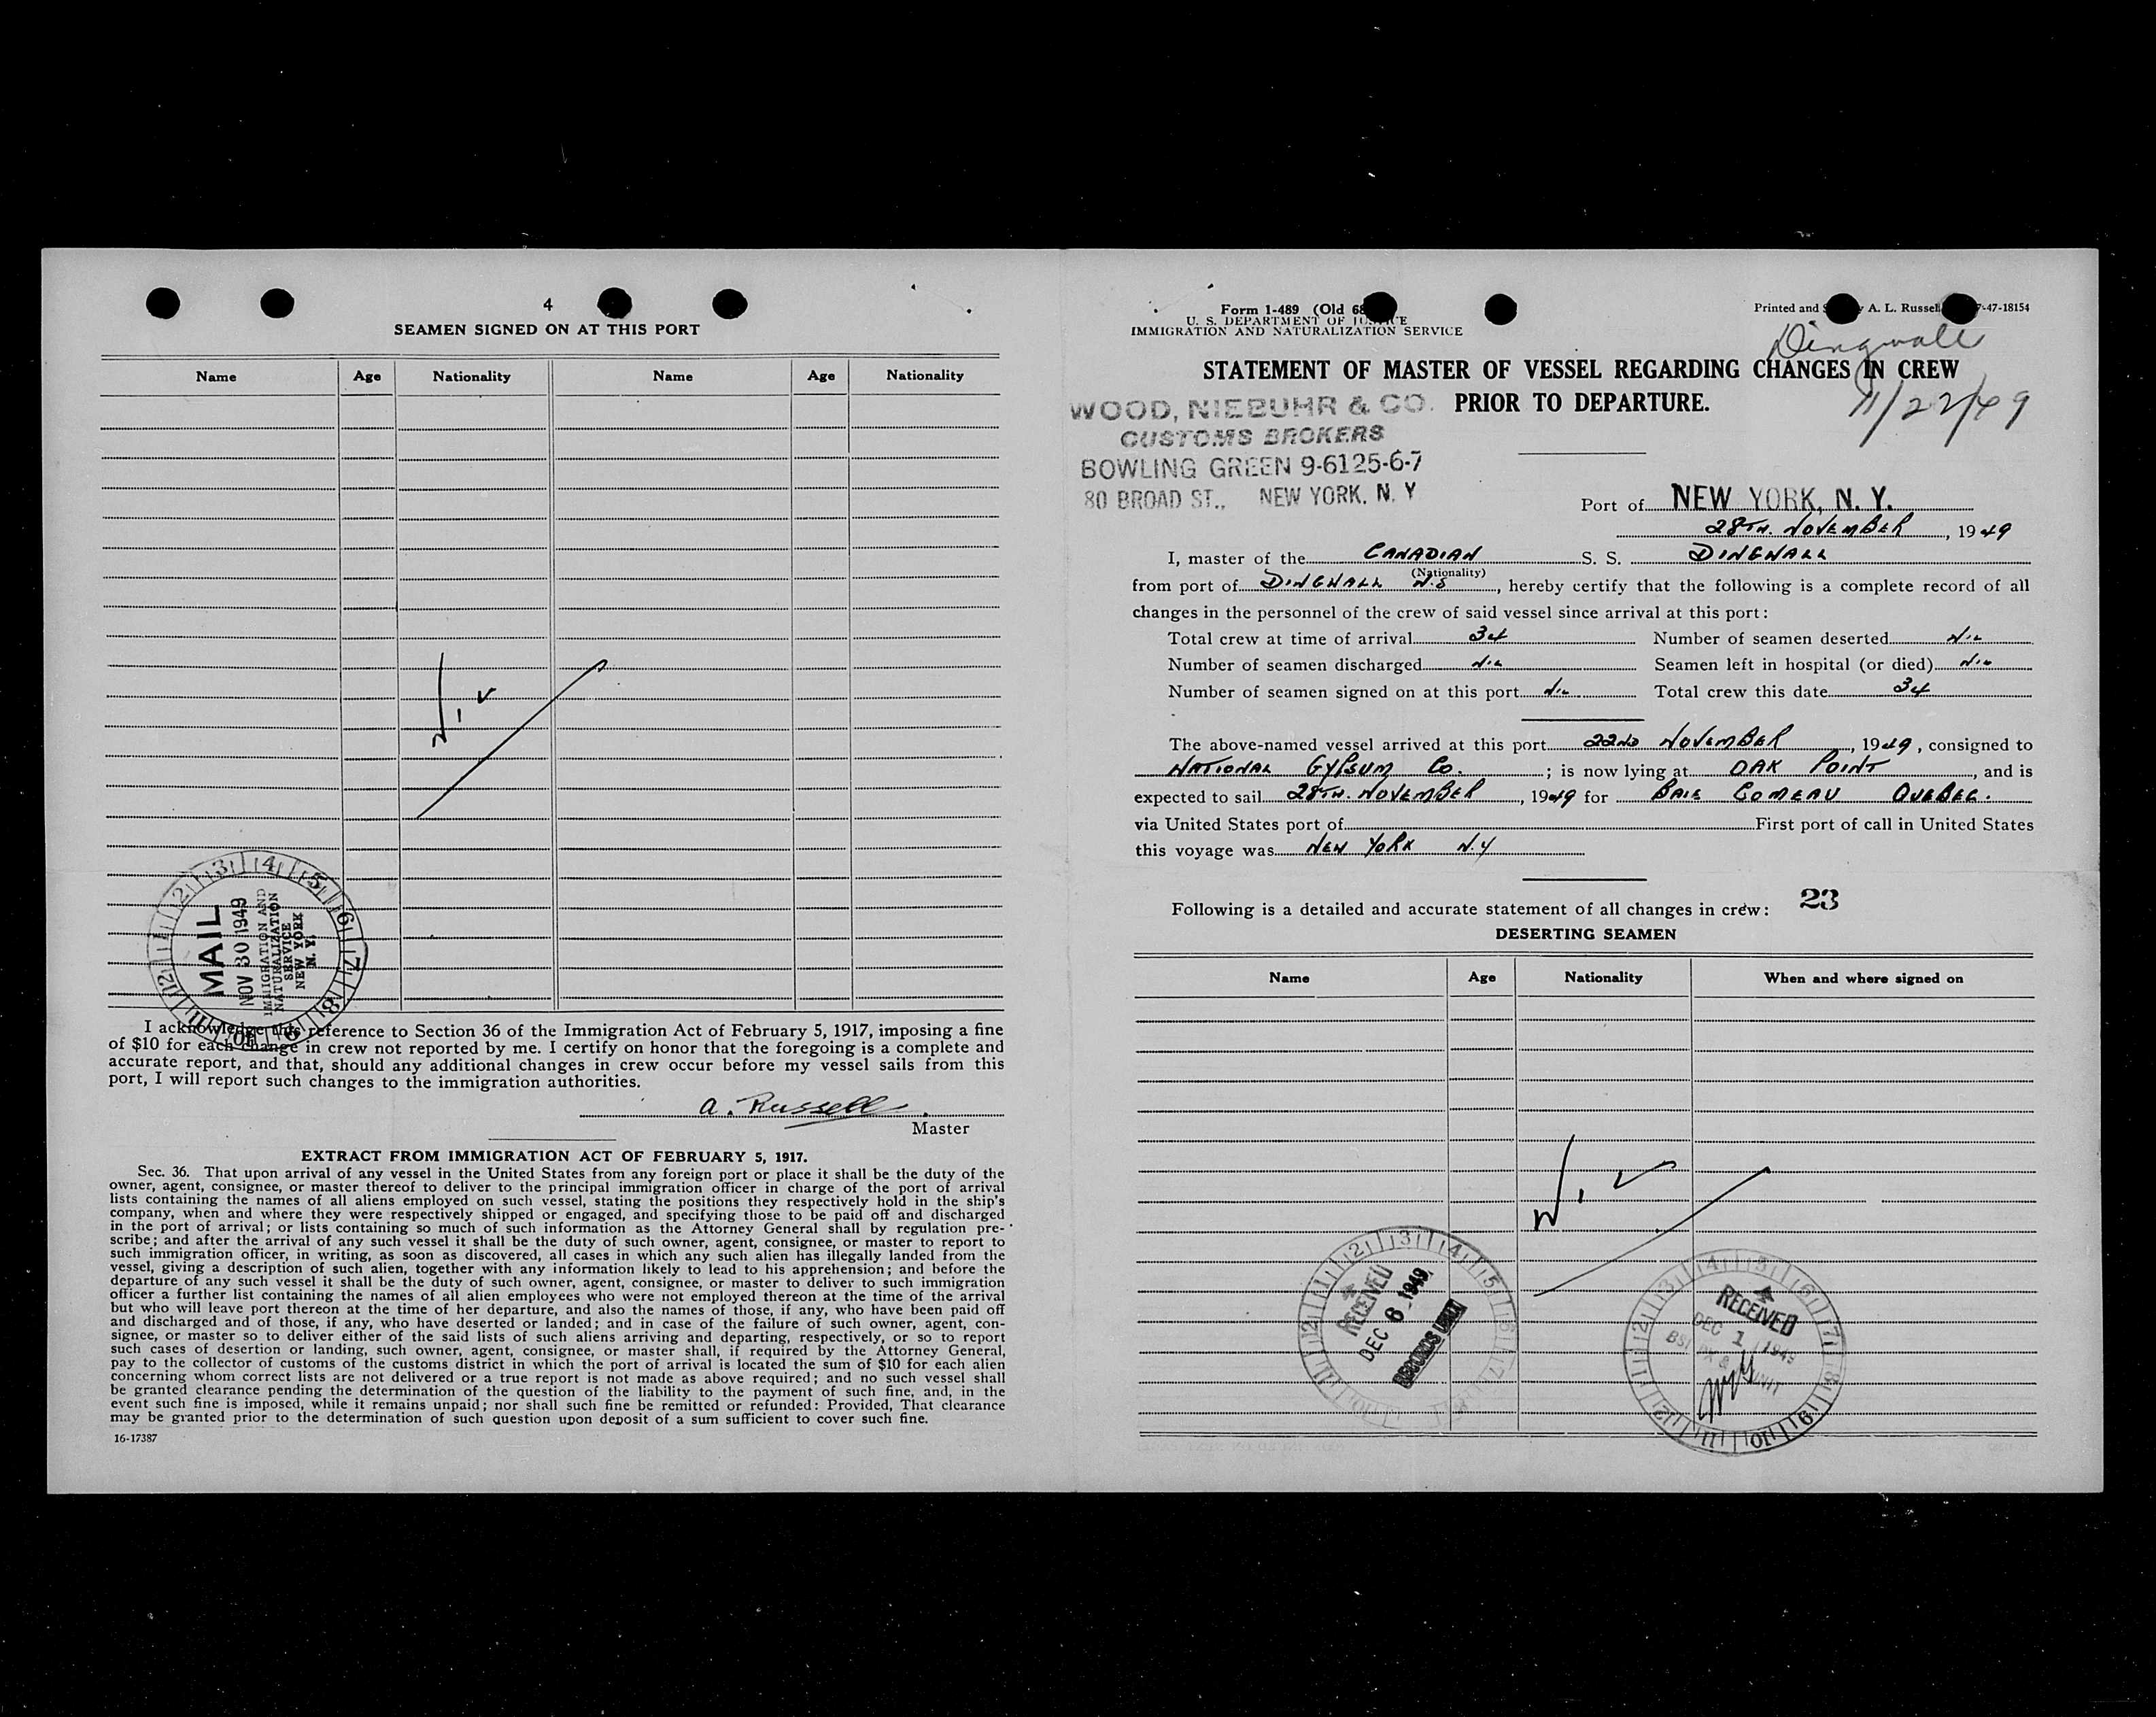 4
SEAMEN SIGNED ON AT THIS PORT
Name Age Nationality Name Age Nationality
Nil
MAIL
NOV 30 1949
IMMIGRATION AND
NATURALIZATION
SERVICE
NEW YORK
N. Y.
I acknowledge this reference to Section 36 of the Immigration Act of February 5, 1917, imposing a fine
of $10 for each change in crew not reported by me. I certify on honor that the foregoing is a complete and
accurate report, and that, should any additional changes in crew occur before my vessel sails from this
port, I will report such changes to the immigration authorities.
A. Russell
Master
EXTRACT FROM IMMIGRATION ACT OF FEBRUARY 5, 1917.
Sec. 36. That upon arrival of any vessel in the United States from any foreign port or place it shall be the duty of the
owner, agent, consignee, or master thereof to deliver to the principal immigration officer in charge of the port of arrival
lists containing the names of all aliens employed on such vessel, stating the positions they respectively hold in the ship's
company, when and where they were respectively shipped or engaged, and specifying those to be paid off and discharged
in the port of arrival; or lists containing so much of such information as the Attorney General shall by regulation pre-
scribe; and after the arrival of any such vessel it shall be the duty of such owner, agent, consignee, or master to report to
such immigration officer, in writing, as soon as discovered, all cases in which any such alien has illegally landed from the
vessel, giving a description of such alien, together with any information likely to lead to his apprehension; and before the
departure of any such vessel it shall be the duty of such owner, agent, consignee, or master to deliver to such immigration
officer a further list containing the names of all alien employees who were not employed thereon at the time of the arrival
but who will leave port thereon at the time of her departure, and also the names of those, if any, who have been paid off
and discharged and of those, if any, who have deserted or landed; and in case of the failure of such owner, agent, con-
signee, or master so to deliver either of the said lists of such aliens arriving and departing, respectively, or so to report
such cases of desertion or landing, such owner, agent, consignee, or master shall, if required by the Attorney General,
pay to the collector of customs of the customs district in which the port of arrival is located the sum of $10 for each alien
concerning whom correct lists are not delivered or a true report is not made as above required; and no such vessel shall
be granted clearance pending the determination of the question of the liability to the payment of such fine, and, in the
event such fine is imposed, while it remains unpaid; nor shall such fine be remitted or refunded: Provided, That clearance
may be granted prior to the determination of such question upon deposit of a sum sufficient to cover such fine.
16-17387
Form 1-489 (Old 68
U. S. DEPARTMENT OF JUSTICE
IMMIGRATION AND NATURALIZATION SERVICE
Printed and A. L. Russell 7-47-18154
Dingwall
STATEMENT OF MASTER OF VESSEL REGARDING CHANGES IN CREW
PRIOR TO DEPARTURE.
11/22/49
WOOD, NIEBUHR & CO.
CUSTOMS BROKERS
BOWLING GREEN 9-6125-6-7
80 BROAD ST., NEW YORK, N. Y
Port of NEW YORK, N. Y.
28TH. NOVEMBER, 1949
I, master of the CANADIAN S. S. DINGWALL
(Nationality)
from port of DINGWALL N.S, hereby certify that the following is a complete record of all
changes in the personnel of the crew of said vessel since arrival at this port:
Total crew at time of arrival 34 Number of seamen deserted Nil
Number of seamen discharged Nil Seamen left in hospital (or died) Nil
Number of seamen signed on at this port Nil Total crew this date 34
The above-named vessel arrived at this port 22ND NOVEMBER, 1949, consigned to
NATIONAL GYPSUM CO.; is now lying at OAK POINT, and is
expected to sail 28TH. NOVEMBER, 1949 for BAIE COMEAU QUEBEC.
via United States port of First port of call in United States
this voyage was NEW YORK N.Y
Following is a detailed and accurate statement of all changes in crew: 23
DESERTING SEAMEN
Name Age Nationality When and where signed on
Nil
RECEIVED
DEC 6 1949
RECORDS UNIT
RECEIVED
DEC 1 1949
UNIT